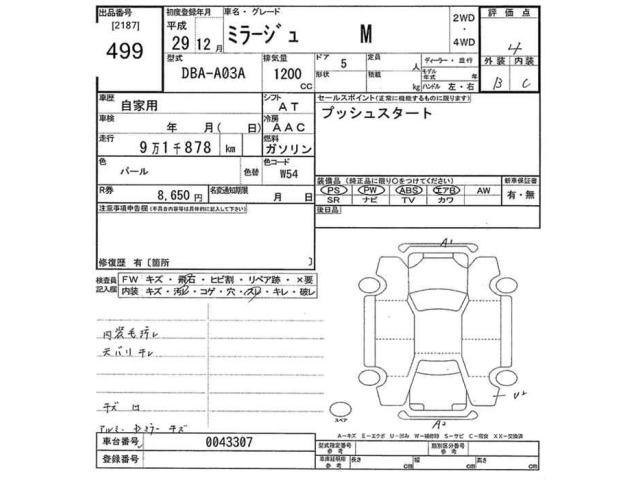 出品番号 初度登録年月 車名・グレード 評価点
[2187] 平成 2WD
499 29年12月 ミラージュ M ・4WD 4
型式 排気量 ドア 定員 ディーラー・並行 外装 内装
DBA-A03A 1200 CC 5 人 モデル年式 年 B C
形状 積載 kg ハンドル 左・右
車歴 シフト セールスポイント(正常に機能するものに限ります)
自家用 AT プッシュスタート
車検 年 月(日) 冷房 AAC
走行 9万1千878 km 燃料 ガソリン
色 パール 色替 色コード W54
装備品(純正品に限り○をつけてください) 新車保証書
PS PW ABS エアB AW 有・無
SR ナビ TV カワ
R券 8,650円 名変通知期限 月 日
後日品
注意事項申告欄
修復歴 有〔箇所 〕
検査員記入欄 FW キズ・飛石・ヒビ割・リペア跡・×要
内装 キズ・汚レ・コゲ・穴・スレ・キレ・破レ
A1
内装毛汚レ
天バリ チレ
U2
キズ 凹
アルミ・Dミラー キズ
スペア
A2
A-キズ E-エクボ U-凹み W-補修跡 S-サビ C-腐食 XX-交換済
車台番号 0043307 型式指定番号 参考 類別区分番号 参考
登録番号 車庫証明用 参考 長さ cm 幅 cm 高さ cm